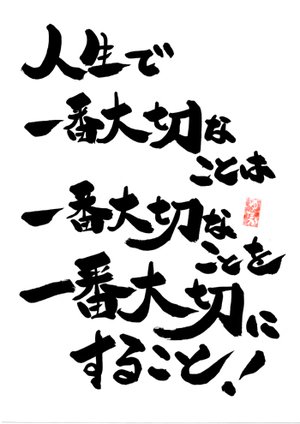 人生で
一番大切な
ことは
一番大切な
ことを
一番大切に
すること!